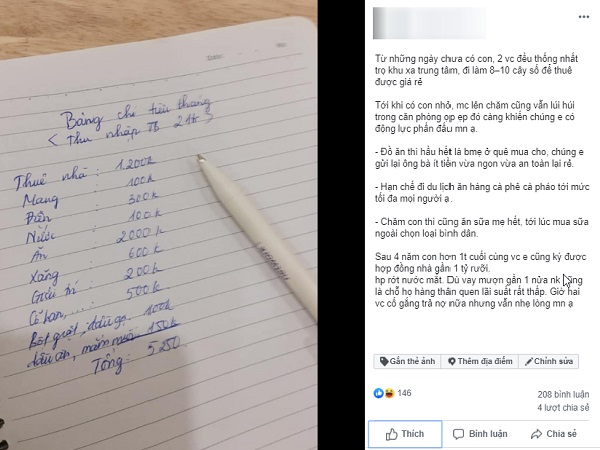 Bảng chi tiêu tháng
< Thu nhập TB 21tr >
Thuê nhà : 1.200k
Mạng : 100k
Điện : 300k
Nước : 100k
Ăn : 2000k
Xăng : 600k
Giải trí : 200k
Cỗ bàn, ... : 500k
Bột giặt, dầu gội 100k
dầu ăn, mắm muối 150k
Tổng: 5.250
Từ những ngày chưa có con, 2 vc đều thống nhất
trọ khu xa trung tâm, đi làm 8–10 cây số để thuê
được giá rẻ
Tới khi có con nhỏ, mẹ lên chăm cũng vẫn lúi húi
trong căn phòng ọp ẹp đó càng khiến chúng e có
động lực phấn đấu mn ạ.
- Đồ ăn thì hầu hết là bmẹ ở quê mua cho, chúng e
gửi lại ông bà ít tiền vừa ngon vừa an toàn lại rẻ.
- Hạn chế đi du lịch ăn hàng cà phê cà pháo tới mức
tối đa mọi người ạ.
- Chăm con thì cũng ăn sữa mẹ hết, tới lúc mua sữa
ngoài chọn loại bình dân.
Sau 4 năm con hơn 1t cuối cùng vc e cũng ký được
hợp đồng nhà gần 1 tỷ rưỡi.
hp rớt nước mắt. Dù vay mượn gần 1 nửa nk cũng
là chỗ họ hàng thân quen lãi suất rất thấp. Giờ hai
vc cố gắng trả nợ nữa nhưng vẫn nhẹ lòng mn ạ
Gắn thẻ ảnh Thêm địa điểm Chỉnh sửa
146 208 bình luận
4 lượt chia sẻ
Thích Bình luận Chia sẻ